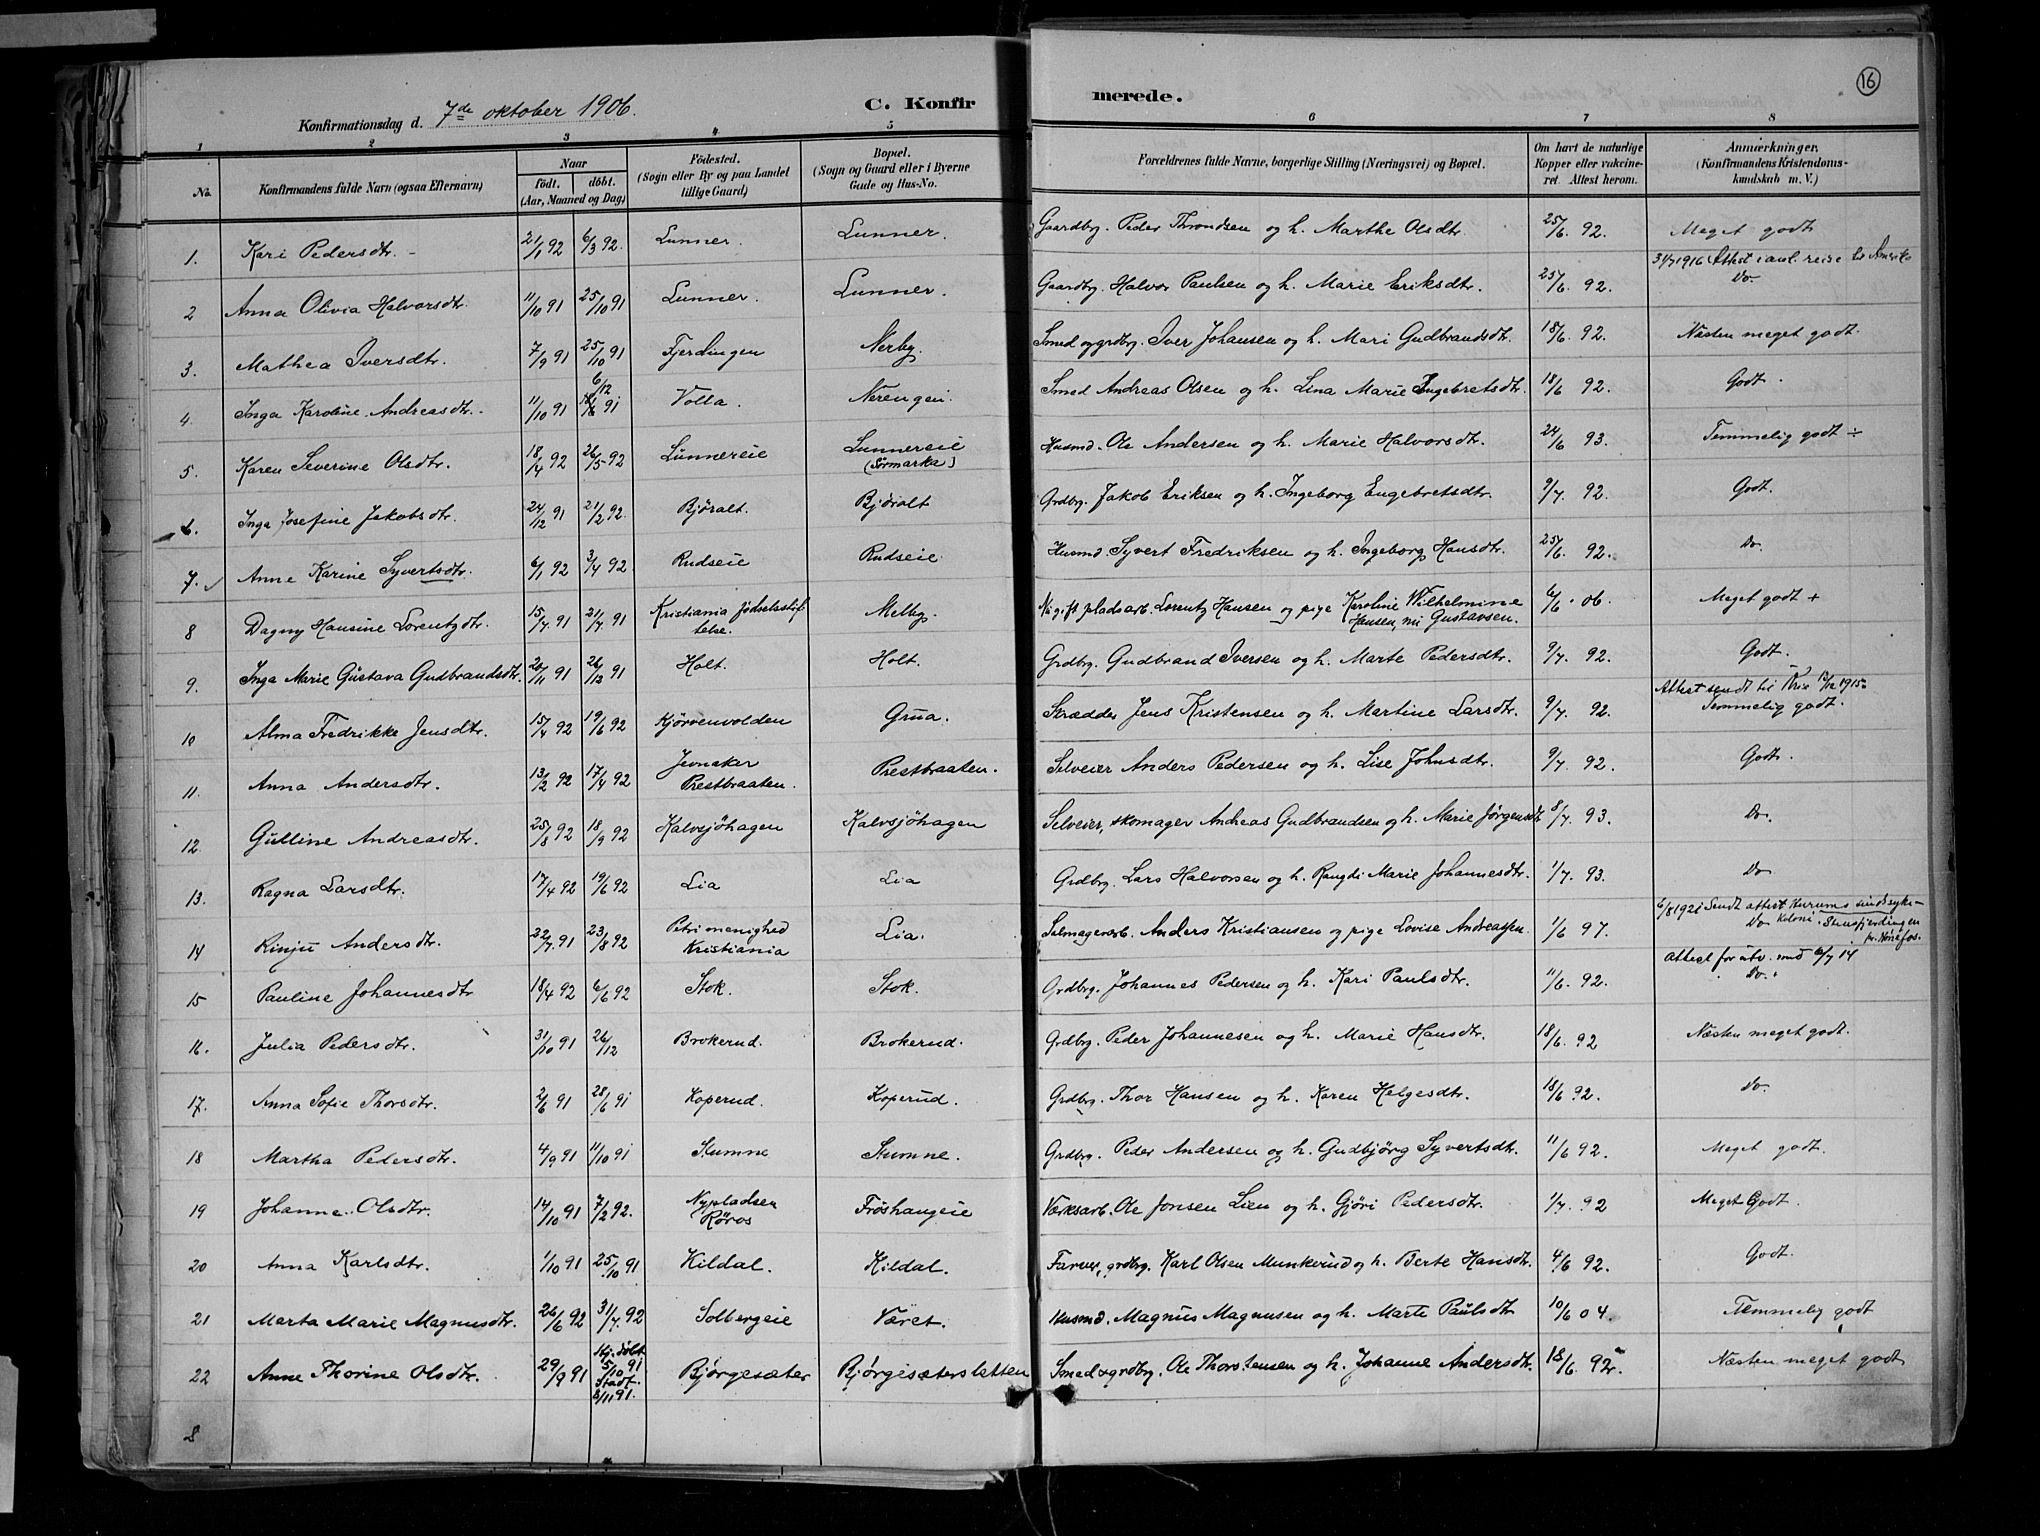 16
Konfirmationsdag d. 7de oktober 1906. C. Konfirmerede.
1 2 3 4 5 6 7 8
No. Konfirmandens fulde Navn (ogsaa Efternavn) Naar födt. döbt. (Aar, Maaned og Dag) Födested. (Sogn eller By og paa Landet tillige Gaard) Bopæl. (Sogn og Gaard eller i Byerne Gade og Hus-No. Forældrenes fulde Navne, borgerlige Stilling (Næringsvei) og Bopæl. Om havt de naturlige Kopper eller vaccineret. Attest herom. Anmærkninger. (Konfirmandens Kristendomskundskab m. V.)
1. Kari Pedersdtr. 21/1 92 6/3 92. Lunner. Lunner. Gaardbr. Peder Throndsen og h. Marthe Olsdtr. 25/6. 92. Meget godt
2 Anna Olivia Halvorsdtr. 11/10 91 25/10 91 Lunner. Lunner. Gaardbr. Halvor Paulsen og h. Marie Eriksdtr. 25/6. 92. 31/7 1916 Attest i anl. reise til Amerika Do.
3. Mathea Iversdtr. 7/9 91 25/10 91 Fjerdingen Nerby. Smed og grdbr. Iver Johansen og h. Mari Gudbrandsdtr. 18/6. 92. Næsten meget godt.
4. Inga Karoline Andreasdtr. 11/10 91 6/12 91 Volla. Nerengen. Smed Andreas Olsen og h. Lina Marie Ingebretsdtr. 18/6 92. Godt.
5. Karen Severine Olsdtr. 18/4 92 26/5 92 Lunnereie Lunnereie (Sørmarka) Husmd. Ole Andersen og h. Marie Halvorsdtr. 24/6 93. Temmelig godt ÷
6. Inga Josefine Jakobsdtr. 24/12 91 21/2 92. Bjøralt. Björalt Grdbr. Jakob Eriksen og h. Ingeborg Engebretsdtr. 9/7. 92. Godt.
7. Anne Karine Syvertsdtr. 6/1 92 3/4 92 Rudseie Rudseie. Husmd Syvert Fredriksen og h. Ingeborg Hansdtr. 25/6. 92. Do.
8 Dagny Hansine Lorentzdtr. 15/7. 91 21/7. 91 Kristiania fødselsstiftelse. Melby. Ugift pladsarb. Lorentz Hansen og pige Karoline Wilhelmine Hansen, nu Gustavsen. 6/6. 06. Meget godt +
9. Inga Marie Gustava Gudbrandsdtr. 20/11 91 26/12 91 Holt. Holt. Grdbr. Gudbrand Iversen og h. Marte Pedersdtr. 9/7. 92. Godt.
10 Alma Fredrikke Jensdtr. 15/4 92 19/6 92 Kjörvenvolden Grua. Skrædder Jens Kristensen og h. Martine Larsdtr. 9/7. 92. Attest sendt til 1915. Temmelig godt.
11. Anna Andersdtr. 13/2 92 17/4 92 Jevnaker Prestbraaten. Prestbraaten. Selveier Anders Pedersen og h. Lise Johnsdtr. 9/7. 92. Godt.
12. Gulline Andreasdtr. 25/8 92 18/9 92 Kalvsjöhagen Kalvsjöhagen Selveier, skomager Andreas Gudbrandsen og h. Marie Jørgensdtr 8/7. 93. Do.
13. Ragna Larsdtr. 17/4 92 19/6 92 Lia Lia Grdbr. Lars Halvorsen og h. Rangdi Marie Johannesdtr. 1/7. 93. Do
14 Andersdtr. 22/7 91 23/8 92 Petri menighed Kristiania Lia. Anders Kristiansen og pige Lovise Andreassen. 1/6 97. 6/8 1921 Sendt attest sindssyke- Do koloni. pr. Hønefos.
15 Pauline Johannesdtr 18/4 92 6/6 92 Stok. Stok. Grdbr. Johannes Pedersen og h. Kari Paulsdtr. 11/6. 92. Attest for utv. 14 Do.
16. Julia Pedersdtr. 31/10 91 26/12 Brokerud. Brokerud. Grdbr. Peder Johannesen og h. Marie Hansdtr. 18/6. 92 Næsten meget godt.
17. Anna Sofie Thorsdtr. 2/6 91 28/6 91 Koperud. Koperud. Grdbr. Thor Hansen og h. Karen Helgesdtr. 18/6 92. Do.
18 Martha Pedersdtr. 4/9 91 11/10 91 Stumne Stumne. Grdbr. Peder Andersen og h. Gudbjörg Syvertsdtr. 11/6 92. Meget godt.
19 Johanne Olsdtr. 14/10 91 7/2 92. Nypladsen Röros Fröshaugeie Værksarb. Ole Jonsen Lien og h. Gjöri Pedersdtr. 1/7. 92 Meget Godt.
20 Anna Karlsdtr. 1/10 91 25/10 91 Kildal. Kildal. Farver, grdbr. Karl Olsen Munkerud og h. Berte Hansdtr. 4/6 92. Godt.
21 Marta Marie Magnusdtr. 26/6 92 31/7. 92 Solbergeie Været. Husmd. Magnus Magnusen og h. Marte Paulsdtr 10/6 04. Temmelig godt
22 Anne Thorine Olsdtr. 29/9 91 Hj. döbt 5/10 91 Stadf. 8/11 91. Bjørgesæter Bjørgesæterslætten Smed & grdbr. Ole Thorstensen og h. Johanne Andersdtr. 18/6. 92. Næsten meget godt
8